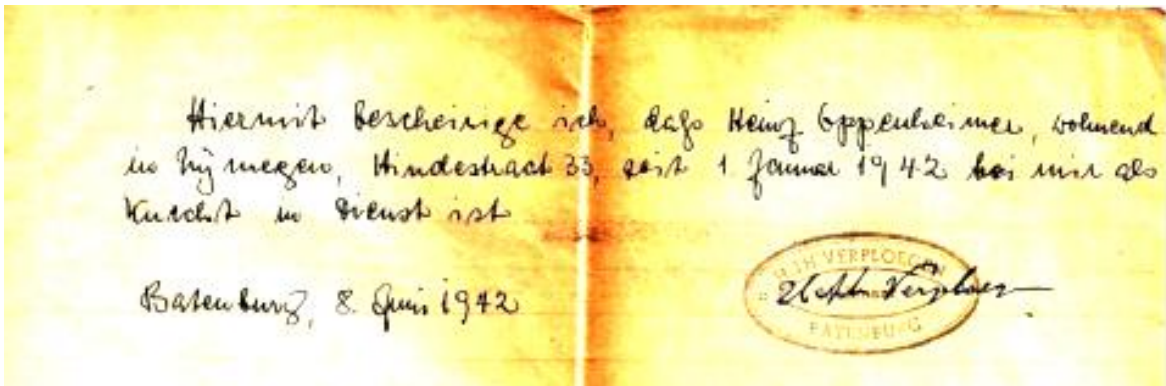 Hiermit bescheinige ich, dass Heinz Oppenheimer, wohnend
in Nijmegen, Hindestraat 33, seit 1 Januar 1942 bei mir als
Knecht in Dienst ist
Batenburg, 8. Juni 1942
VERPLOEGEN
BATENBURG